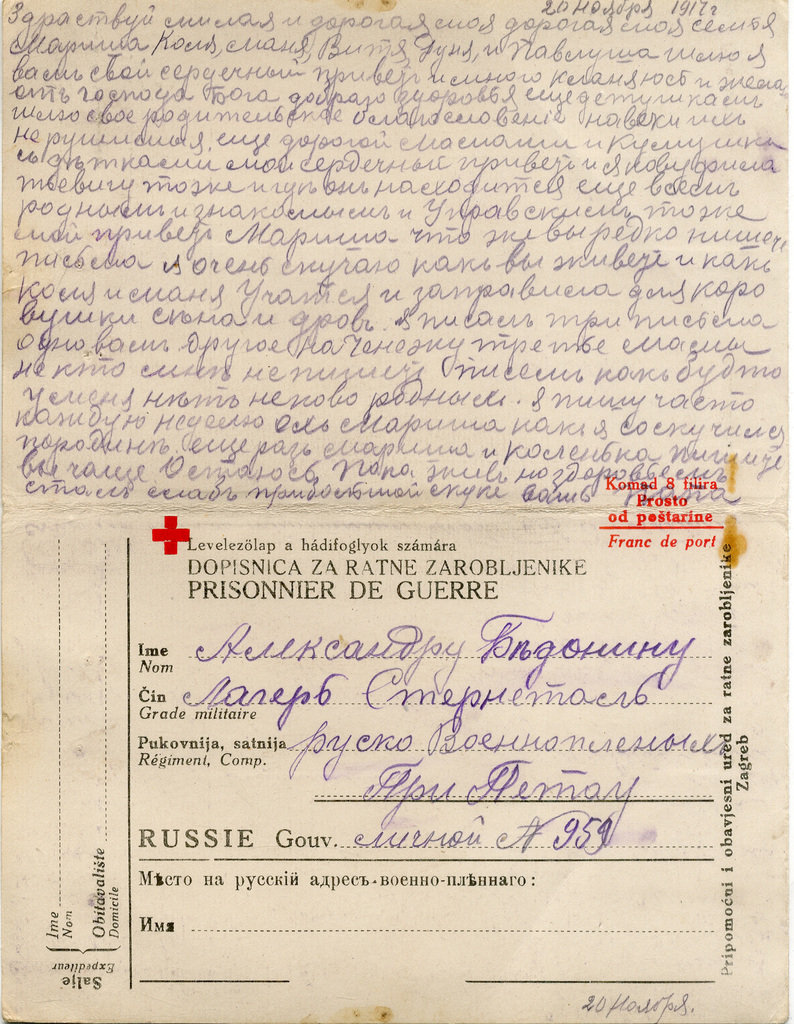 20 Ноября 1917 г
Здраствуй милая и дорогая моя дорогая моя семья
Мариша Коля, маня, Витя Дуня, и Павлуша шлю я
вамъ свой сердечный приветъ и много кланяюсь и желаю
отъ господа бога доброго здоровья еще детушкамъ
шлю свое родительское благословение навеки ихъ
нерушимыя, еще дорогой мамаши и
съ детками мой сердечный приветъ и я
тоже и где онъ находится еще всемъ
роднымъ и знакомымъ и Управскимъ тоже
мой приветъ Мариша что же вы редко пишете
письма я очень скучаю какъ вы живете и какъ
коля и маня Учатся и заправила для коро
вушки сена и дровъ. я писалъ три письма
одно вамъ другое на Ченежку третье мамы
не кто мне не пишетъ писемъ какъ будто
у меня нетъ неково родныхъ. я пишу часто
каждую неделю охъ Мариша какъ я соскучился
по родине. еще разъ мариша и коленька пишите
вы чаще Остаюсь папа живъ но здоровьемъ
сталъ слабъ при скуке вашъ папа
Komad 8 filira
Prosto
od poštarine
Franc de port
Levelezölap a hádifoglyok számára
DOPISNICA ZA RATNE ZAROBLJENIKE
PRISONNIER DE GUERRE
Ime Александру Бедонину
Nom
Čin Лагерь Стернеталь
Grade militaire
Pukovnija, satnija руско Военнопленымъ
Régiment, Comp.
При Петау
RUSSIE Gouv. личной № 959
Мѣсто на русскій адресъ-военно-плѣннаго:
Имя
20 Ноября.
Pripomoćni i obavjesni ured za ratne zarobljenike
Zagreb
Ime
Nom
Obitavalište
Domicile
Šalje
Expediteur